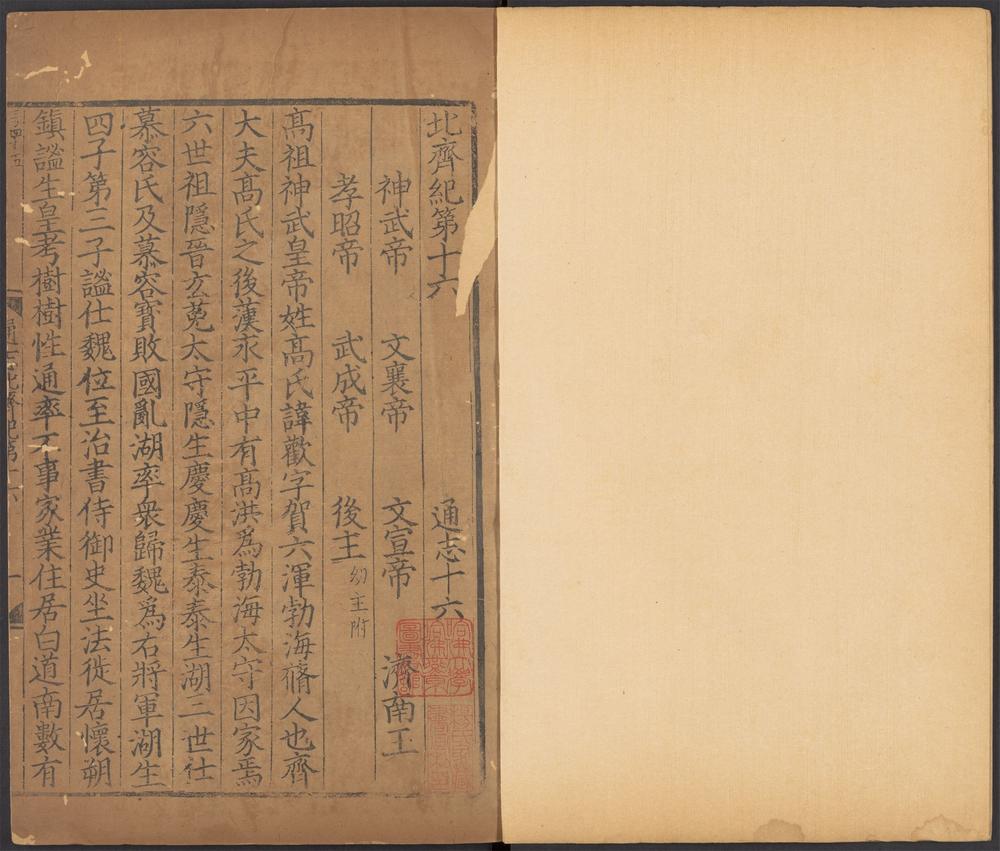 北齊紀第十六 通志十六
神武帝 文襄帝 文宣帝 濟南王
孝昭帝 武成帝 後主 幼主附
高祖神武皇帝姓高氏諱歡字賀六渾勃海脩人也齊
大夫高氏之後漢永平中有高洪爲勃海太守因家焉
六世祖隱晉玄菟太守隱生慶慶生泰泰生湖三世仕
慕容氏及慕容寶敗國亂湖率衆歸魏爲右將軍湖生
四子第三子謐仕魏位至治書侍御史坐法徙居懷朔
鎮謐生皇考樹樹性通率不事家業住居白道南數有